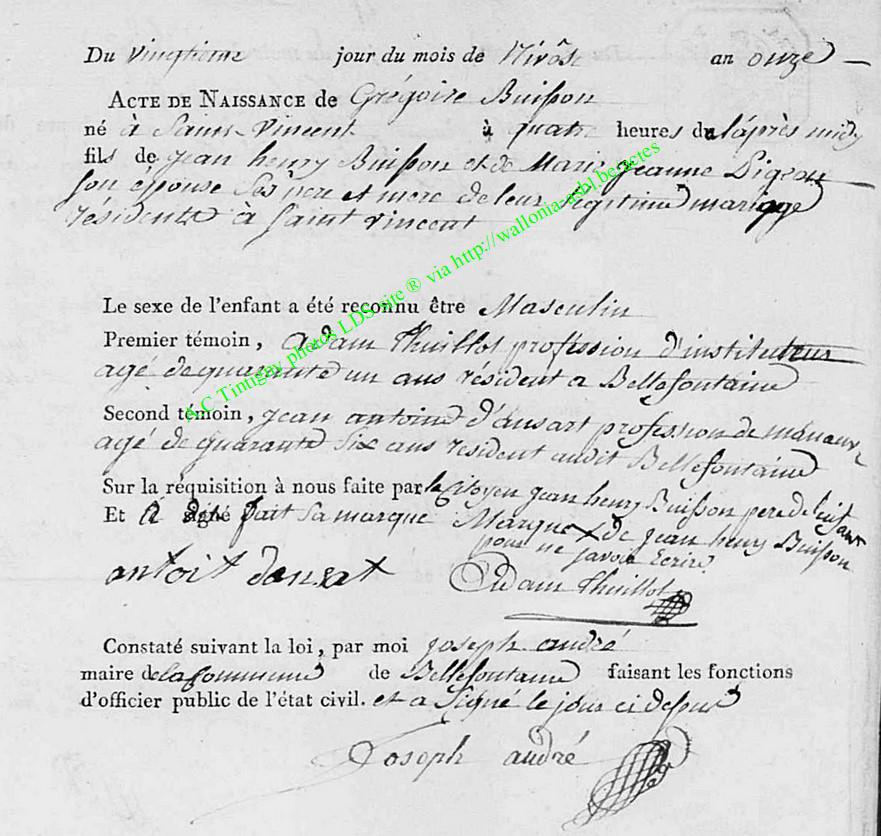 Du vingtieme jour du mois de Nivôse an onze
ACTE DE NAISSANCE de Grégoire Buisson
né à Saint-Vincent à quatre heures de l'après midy
fils de jean henry Buisson et de Marie jeanne Pigeon
son épouse ses père et mere de leur légitime mariage
résidents à Saint Vincent
A.C Tintigny photos LDS site ® via http://wallonia-asbl.be/actes
Le sexe de l'enfant a été reconnu être Masculin
Premier témoin, adam Thuillot profession d'instituteur
agé de quarante un ans résident a Bellefontaine
Second témoin, jean antoine d'ansart profession de manœuv-
agé de quarante six ans resident audit Bellefontaine
Sur la réquisition à nous faite par le Citoyen jean henry Buisson pere de l'enfant
Et a signé fait sa marque Marque X de jean henry Buisson
pour ne savoir Ecrire
antoit dansat Adam Thuillot
Constaté suivant la loi, par moi joseph andré
maire de la Commune de Bellefontaine faisant les fonctions
d'officier public de l'état civil. et a Signé le jour ci dessus
Joseph andré